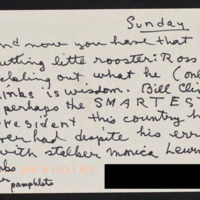 Sunday
and now you have that
utting little rooster: Ross
claling out what he (onl
inks is wisdom. Bill Clin
perhaps the SMARTES
resident this country h
ver had despite his err
with stalker monica Lewin
mbs
pamphlets